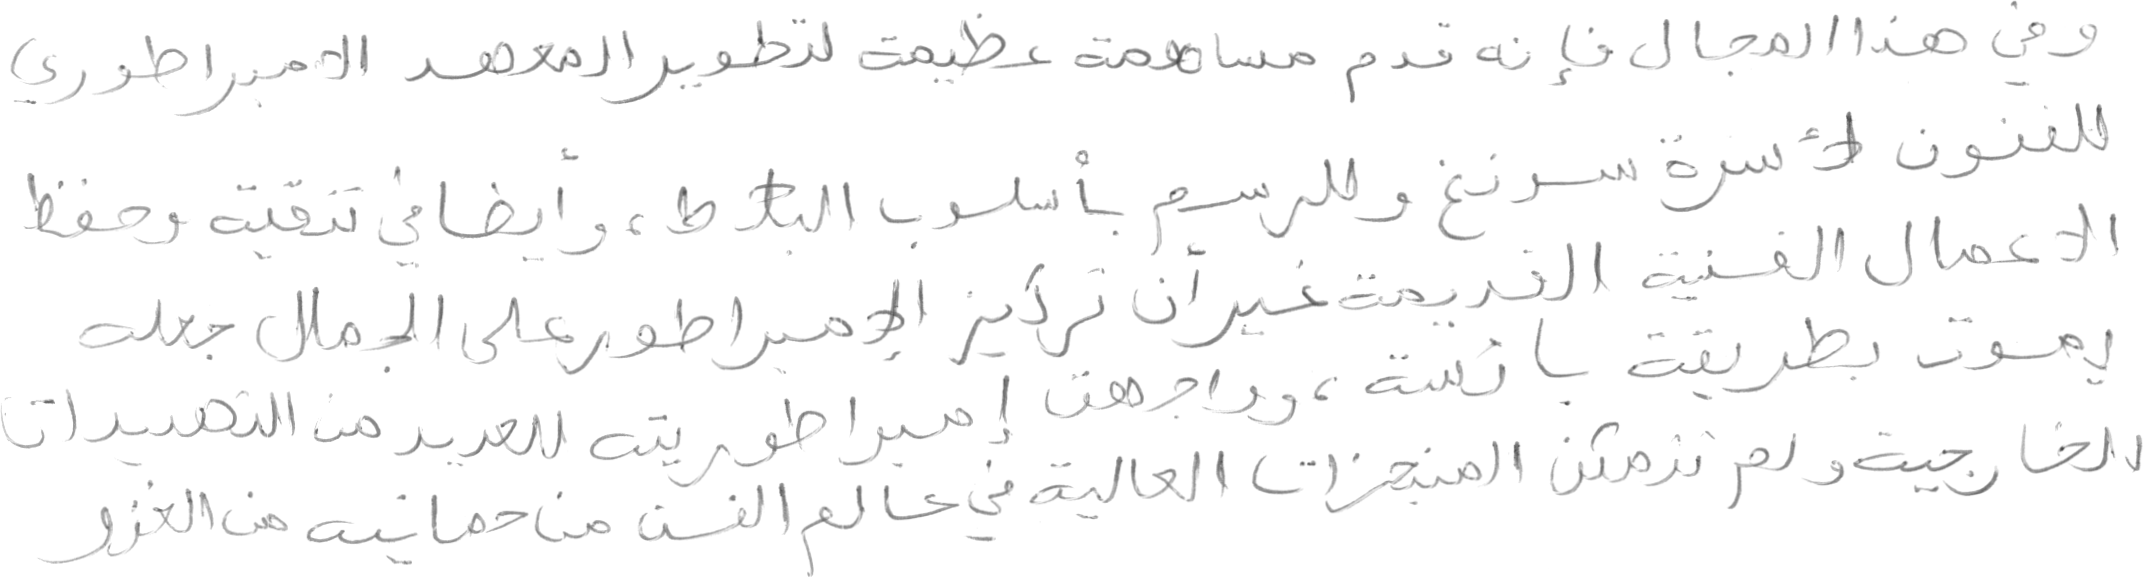 وفي هذا المجال فإنه قدم مساهمة عظيمة لتطوير المعهد الامبراطوري
للفنون لأسرة سرنغ وللرسم بأسلوب البلاط، وأيضا في تنقية وحفظ
الاعمال الفنية القديمة غير أن تركيز الإمبراطور على الجمال جعله
يموت بطريقة بائسة، وواجهت إمبراطوريته العديد من التهديدات
الخارجية ولم تتمكن المنجزات العالية في عالم الفن من حمايته من الغزو